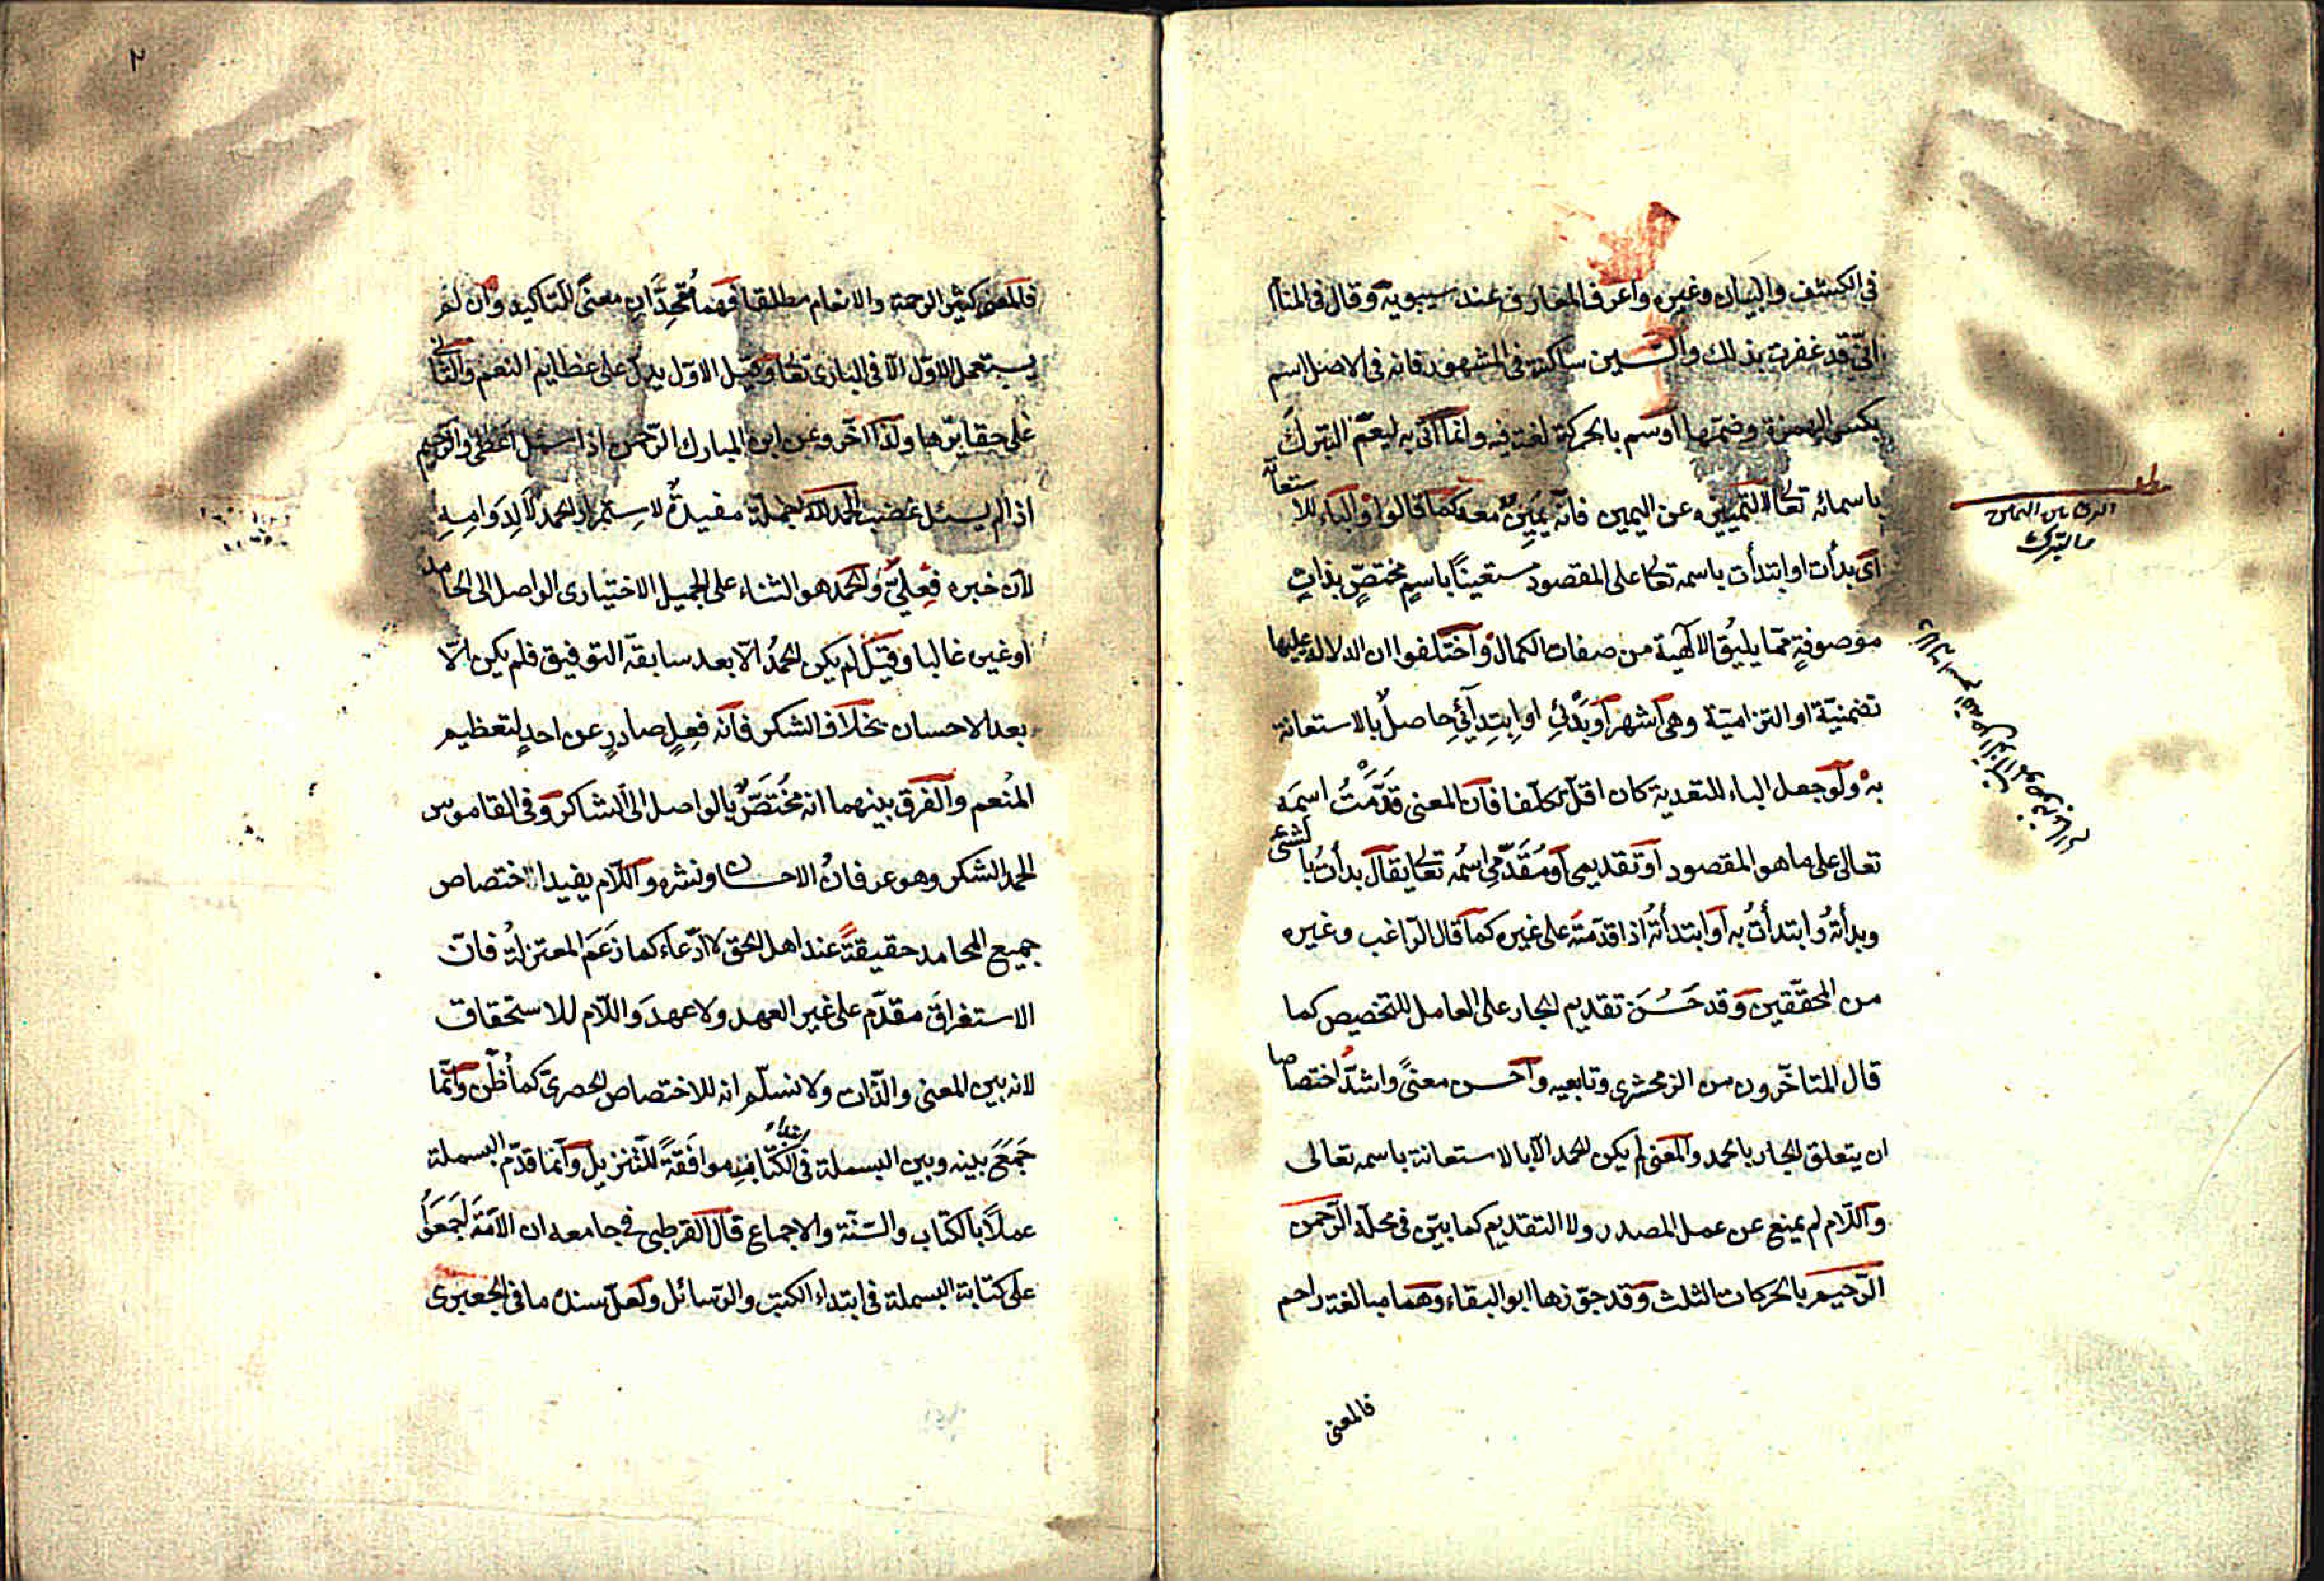 في الكشف والبيان وغيره واعرف المعارف عند سيبويه وقال في المنام
انّي قد غفرت بذلك والسين ساكنة في المشهور فانه في الاصل اسم
بكسر الهمزة وضمّها اوسم بالحركة لغة فيه وانما اتى به ليعمّ التبرك
باسمائه تعالى او لتمييزه عن اليمين فانه يمين معه كما قالوا والباء للاستعانة
اى بدأت او ابتدأت باسمه تعالى على المقصود مستعينًا باسمٍ مختصٍّ بذاتٍ
موصوفةٍ ممّا يليق الالٰهية من صفات الكمال واختلفوا ان الدلالة عليها
تضمنيّة او التزاميّة وهى اشهر او بَدْئي او اِبتِدائي حاصلٌ بالاستعانة
بهْ ولو جعل الباء للتعدية كان اقلّ تكلّفا فان المعنى قَدَّمْتُ اسمَه
تعالى على ما هو المقصود او تقديمى او مُقَدَّمى اسمُه تعالى يقال بدأتُ بالشئ
وبدأتُه وابتدأتُ به او ابتدأتُه اذا قدّمته على غيره كما قال الرّاغب وغيره
من المحقّقين وقد حَسُنَ تقديم الجار على العامل للتخصيص كما
قال المتاخّرون من الزمخشرى وتابعيه واحسن معنىً واشدّ اختصاصا
ان يتعلق الجار بالحمد والمعنى لم يكن الحمد الّا بالاستعانة باسمه تعالى
واللّام لم يمنع عن عمل المصدر ولا التقديم كما بيّن فى محلّه الرّحمن
الرّحيم بالحركات الثلث وقد جوّزها ابو البقاء وهما مبالغة راحم
فالمعنى
٢
فالمعنى كثير الرحمة والانعام مطلقا فهما مُتّحِدَانِ معنىً للتاكيد وان لم
يستعمل الاوّل الّا فى البارى تعالى وقيل الاوّل يدلّ على عظايم النعم والثانى
على حقايرها ولذا اخّر وعن ابن المبارك الرّحمن اذا سئل اعطى والرّحيم
اذا لم يسئل غضب الحمد للّه جملة مفيدةٌ لاستمرار الحمد لا لدوامِهِ
لان خبره فِعْلِيٌّ والحمد هو الثناء على الجميل الاختيارى الواصل الى الحامد
او غيره غالبا وقيل لم يكن الحمدُ الّا بعد سابقة التوفيق فلم يكن الّا
بعد الاحسان بخلاف الشكر فانه فعلٍ صادرٍ عن احدٍ لتعظيم
المُنعم والفرق بينهما انه مُختَصٌّ بالواصل الى الشاكر وفى القاموس
الحمد الشكر وهو عرفانُ الاحسان ونشره واللّام يفيد اختصاص
جميع المحامد حقيقةً عند اهل الحق لا ادّعاء كما زَعَمَ المعتزلة فانّ
الاستغراق مقدّم على غير العهد ولا عهدَ واللّام للاستحقاق
لانه بين المعنى والذّات ولا نسلّم انه للاختصاص الحصرىّ كما ظُنّ وانّما
جَمَعَ بينه وبين البسملة فى ابتداء الكتاب موافقةً للتنزيل وانما قدّم البسملة
عملًا بالكتاب والسّنّة والاجماع قال القرطبى فى جامعه ان الامّة اجمعوا
على كتابة البسملة فى ابتداء الكتب والرّسائل ولعلّ سنده ما فى الجعبرى